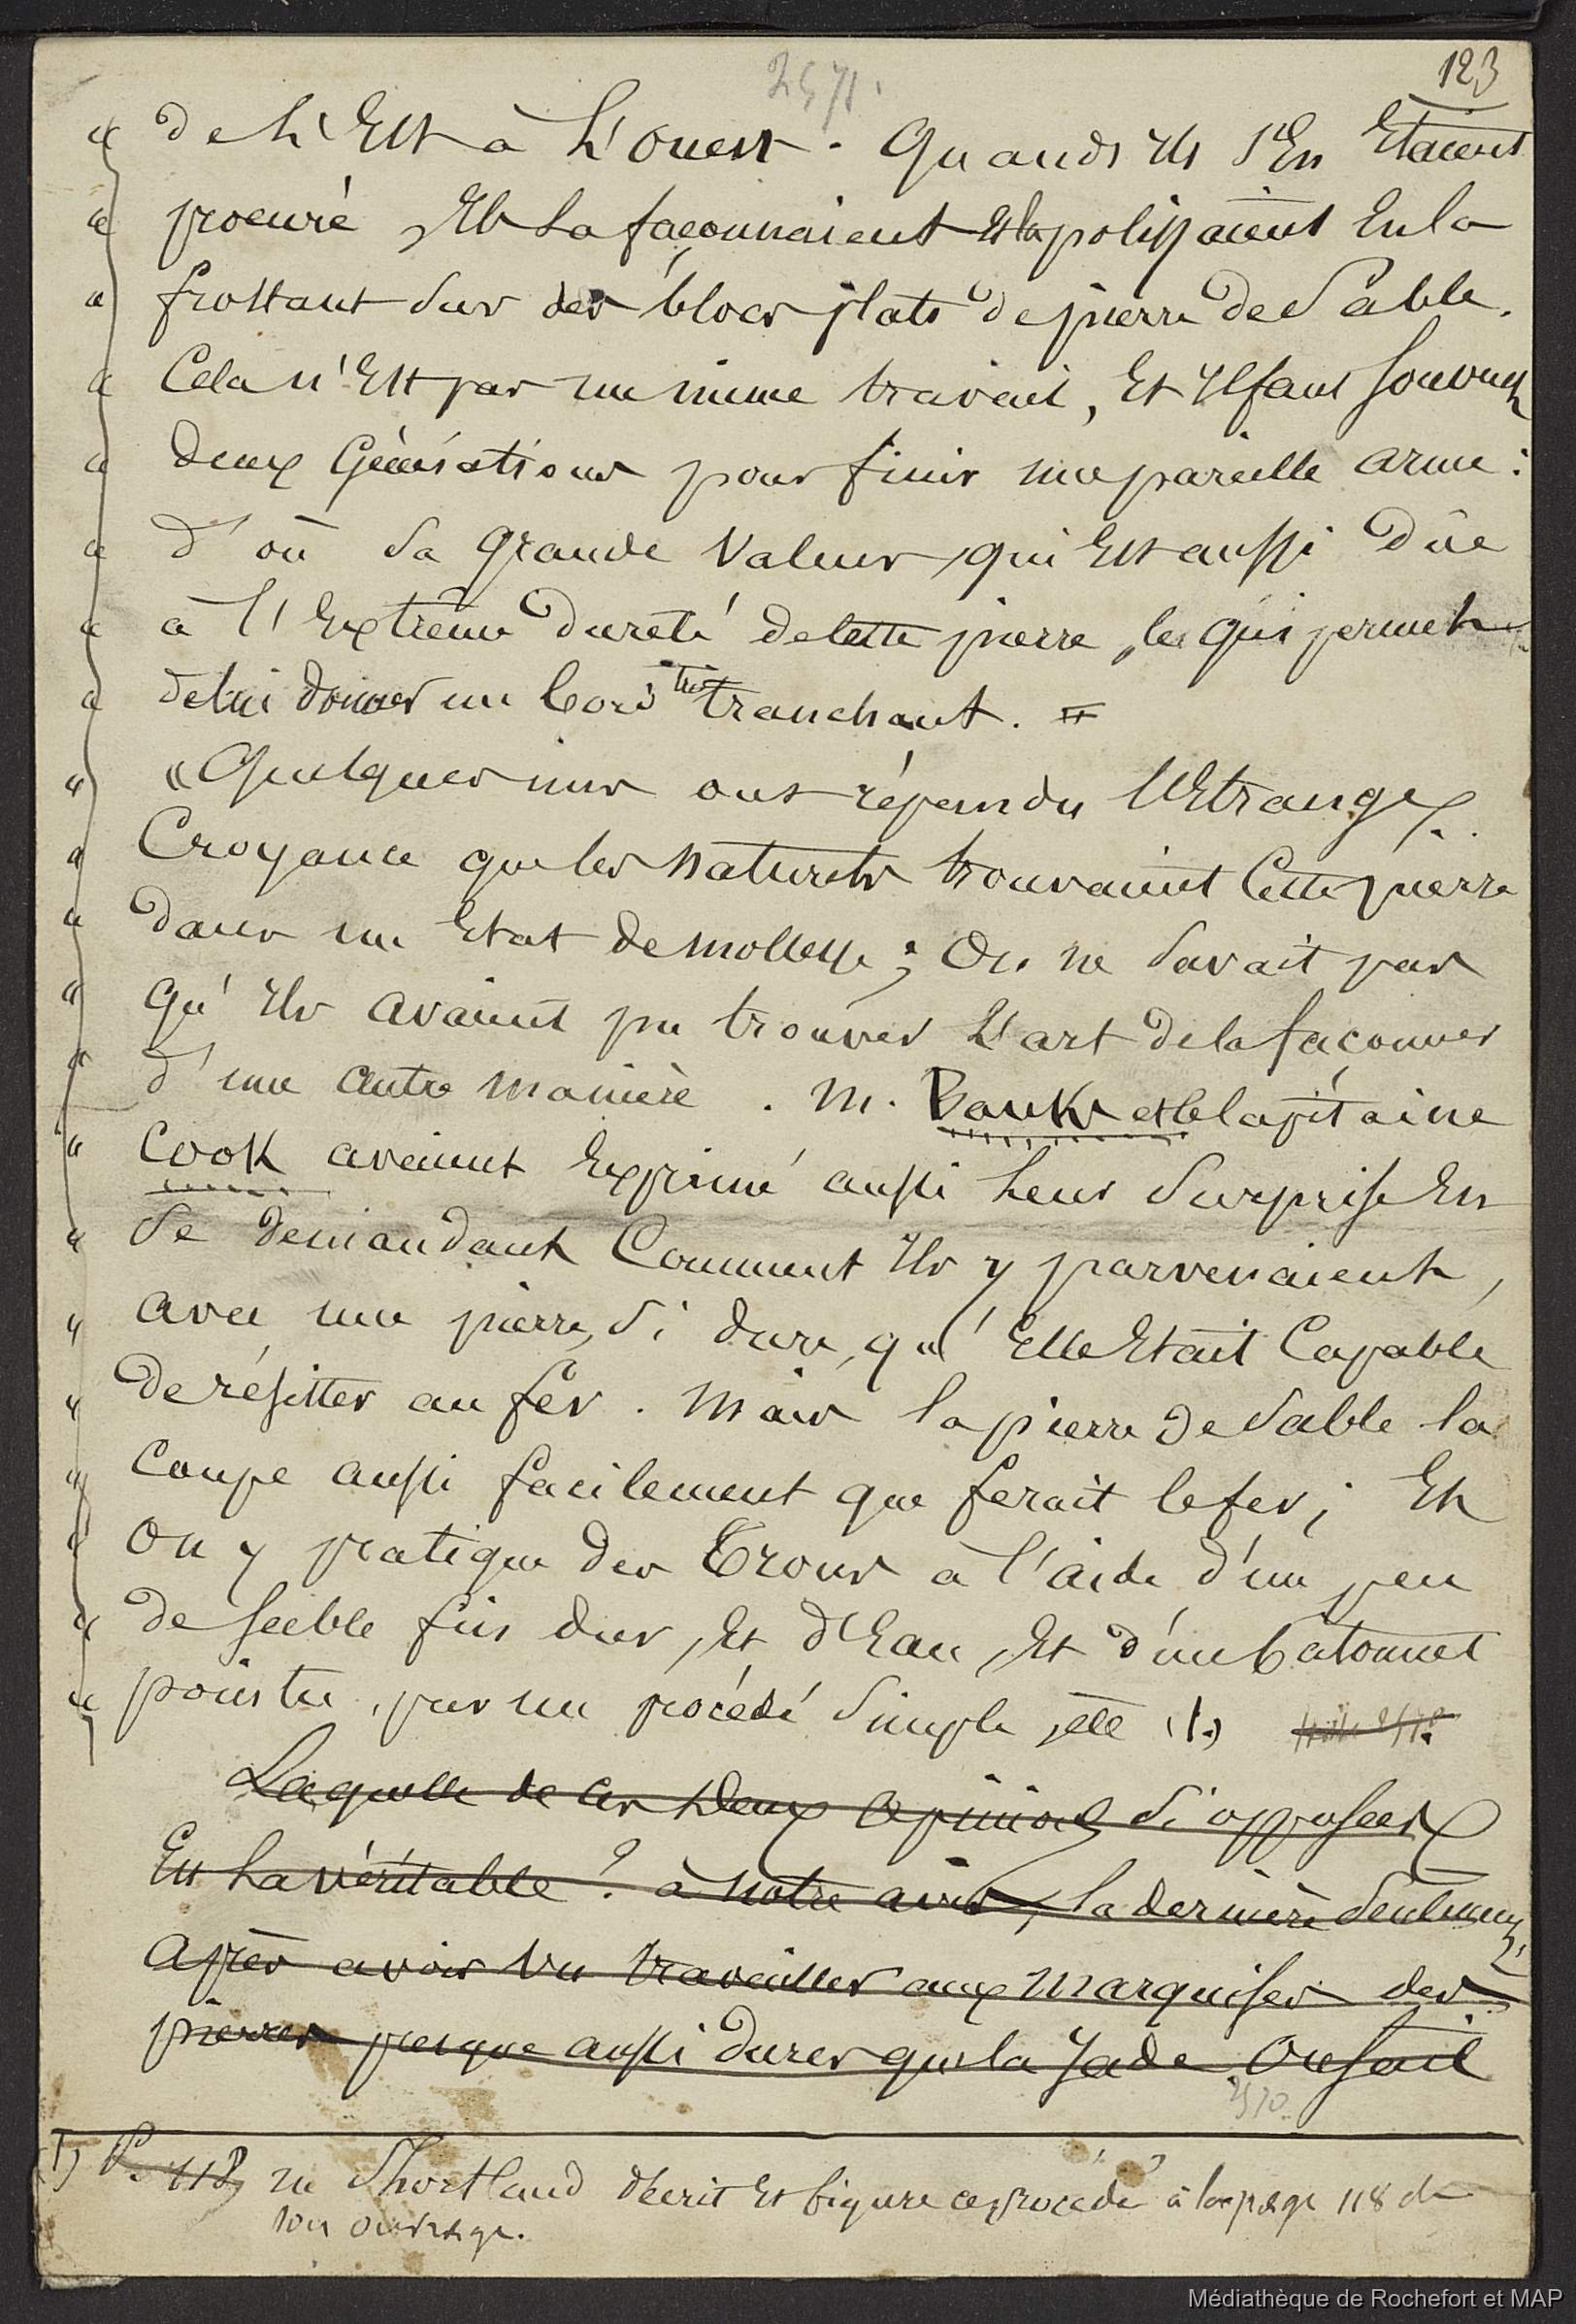 2571.
123
" de L'Est à L'ouest. Quands Ils s'En Etaient
" procuré, Ils La façonnaient Et la polissaient En la
" frottant sur des blocs plats de pierre de Sable.
" Cela n'Est pas un mince travail, Et Il faut souvent
" deux Générations pour finir une pareille arme :
" d'où sa grande Valeur, qui Est aussi Dûe
" à l'Extrême Dureté de Cette pierre, ce qui permet
" de lui donner un bord très tranchant. =
" « Quelques uns ont répandu l'Etrange
" Croyance que les naturels trouvaient Cette pierre
" dans un Etat de mollesse ; On ne Savait pas
" qu'Ils avaient pu trouver L'art de la façonner
" d'une autre manière. M. Banks et le Capitaine
" Cook avaient Exprimé aussi Leur Surprise En
" Se demandant Comment Ils y parvenaient,
" avec une pierre, Si dure, qu'Elle Etait Capable
" de résister au fer. Mais la pierre de Sable la
" Coupe aussi facilement que ferait le fer ; Et
" On y pratique des Trous à l'aide d'un peu
" de sable fin dur, Et d'Eau, Et d'un batonnet
" pointu, par un procédé Simple, etc (1.)
Laquelle de Ces Deux Opinions Si opposées
Est La véritable ? à notre avis, la dernière Seulement,
Après avoir Vu travailler aux Marquises des
pierres presque aussi dures que la Jade Oriental
2570.
(1) P. 118, M Shortland décrit Et figure ce procédé à la page 118 de
son ouvrage.
Médiathèque de Rochefort et MAP